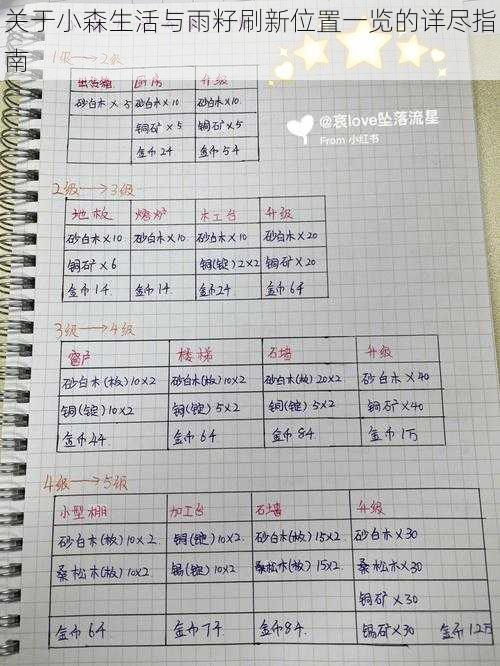 关于小森生活与雨籽刷新位置一览的详尽指南
1级→2级
@哀love坠落流星
From 小红书
出货箱 厨房 升级
砂白木×5 砂白木×10 砂白木×10
铜矿×5 铜矿×5
金币24 金币54
2级→3级
地板 烤炉 木工台 升级
砂白木×10 砂白木×10 砂白木×10 砂白木×20
铜矿×6 铜(锭)2×2 铜矿×20
金币14 金币14 金币24 金币64
3级→4级
窗户 楼梯 石墙 升级
砂白木(板)10×2 砂白木(板)10×2 砂白木(板)20×2 砂白木×40
铜(锭)10×2 铜(锭)5×2 铜(锭)5×2 铜矿×40
金币44 金币64 金币84 金币1万
4级→5级
小型棚 加工台 石墙 升级
砂白木(板)10×2 铜(锭)10×2 砂白木(板)15×2 砂白木×30
桑松木(板)10×2 锡(锭)10×2 桑松木(板)15×2 桑松木×30
铜矿×30
金币64 金币74 金币84 锡矿×30 金币12万